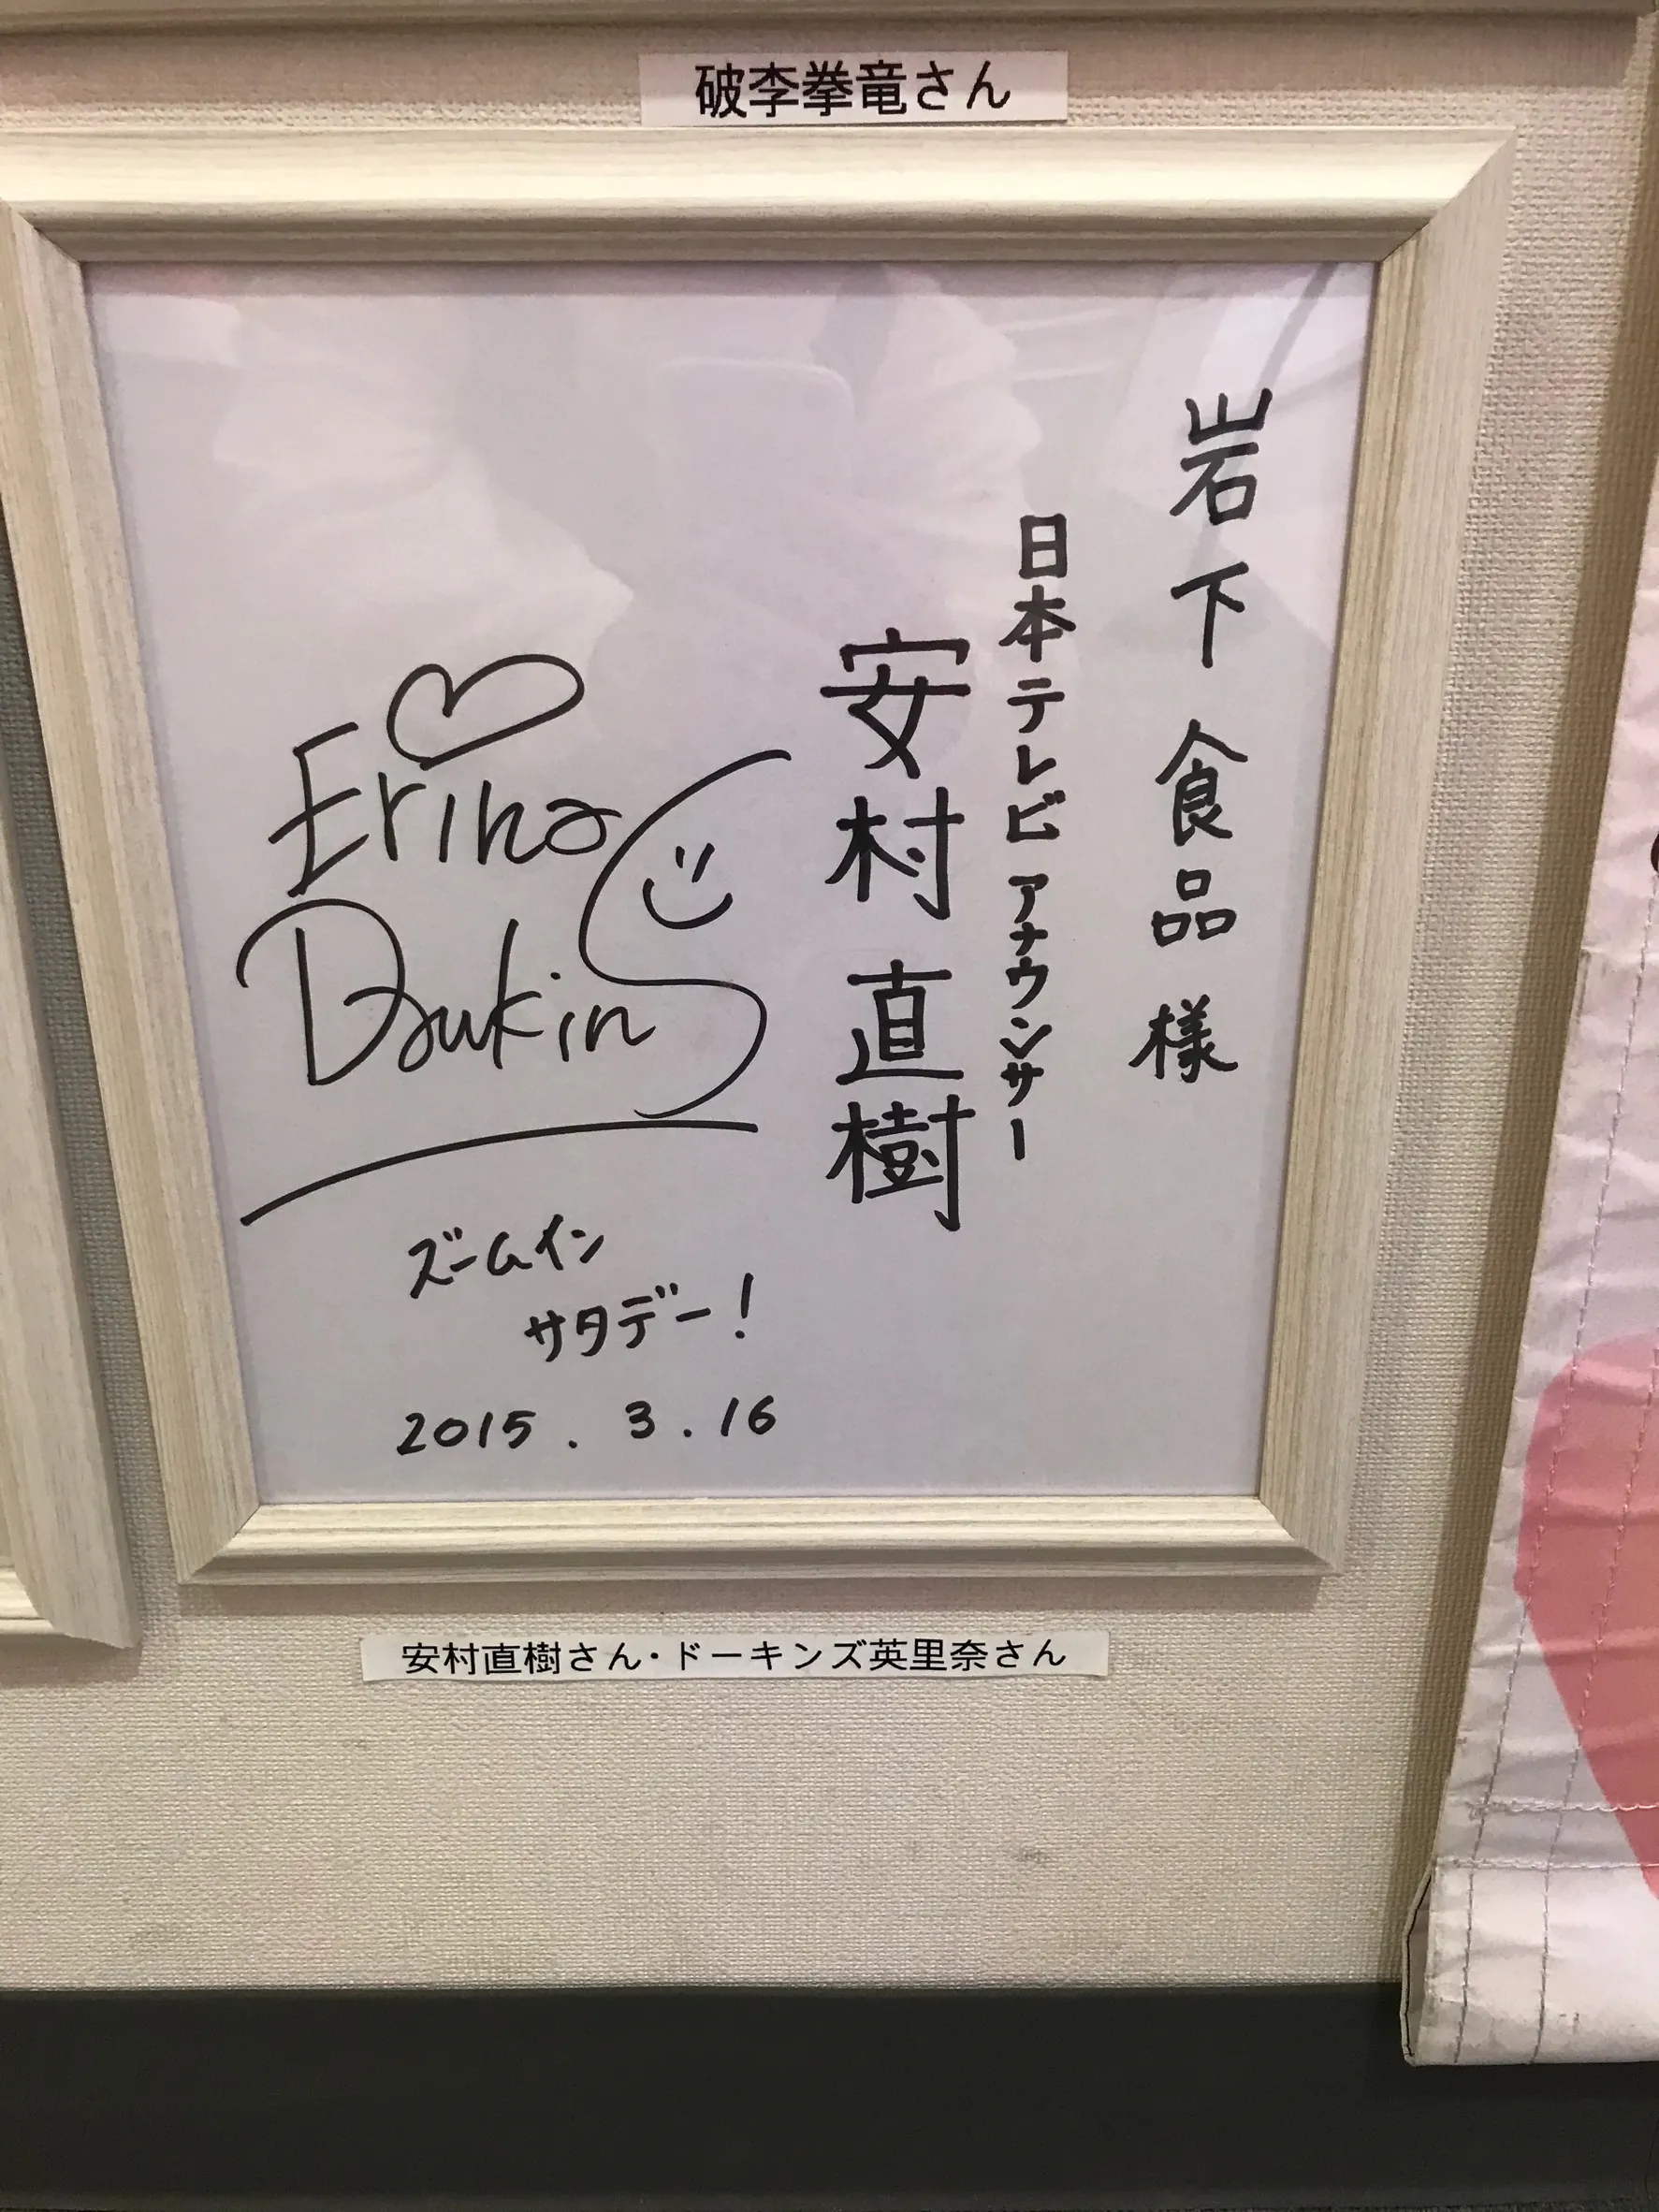 破李拳竜さん
岩下食品様
日本テレビ アナウンサー
安村直樹
Erina
Dawkins
ズームイン
サタデー!
2015.3.16
安村直樹さん・ドーキンズ英里奈さん